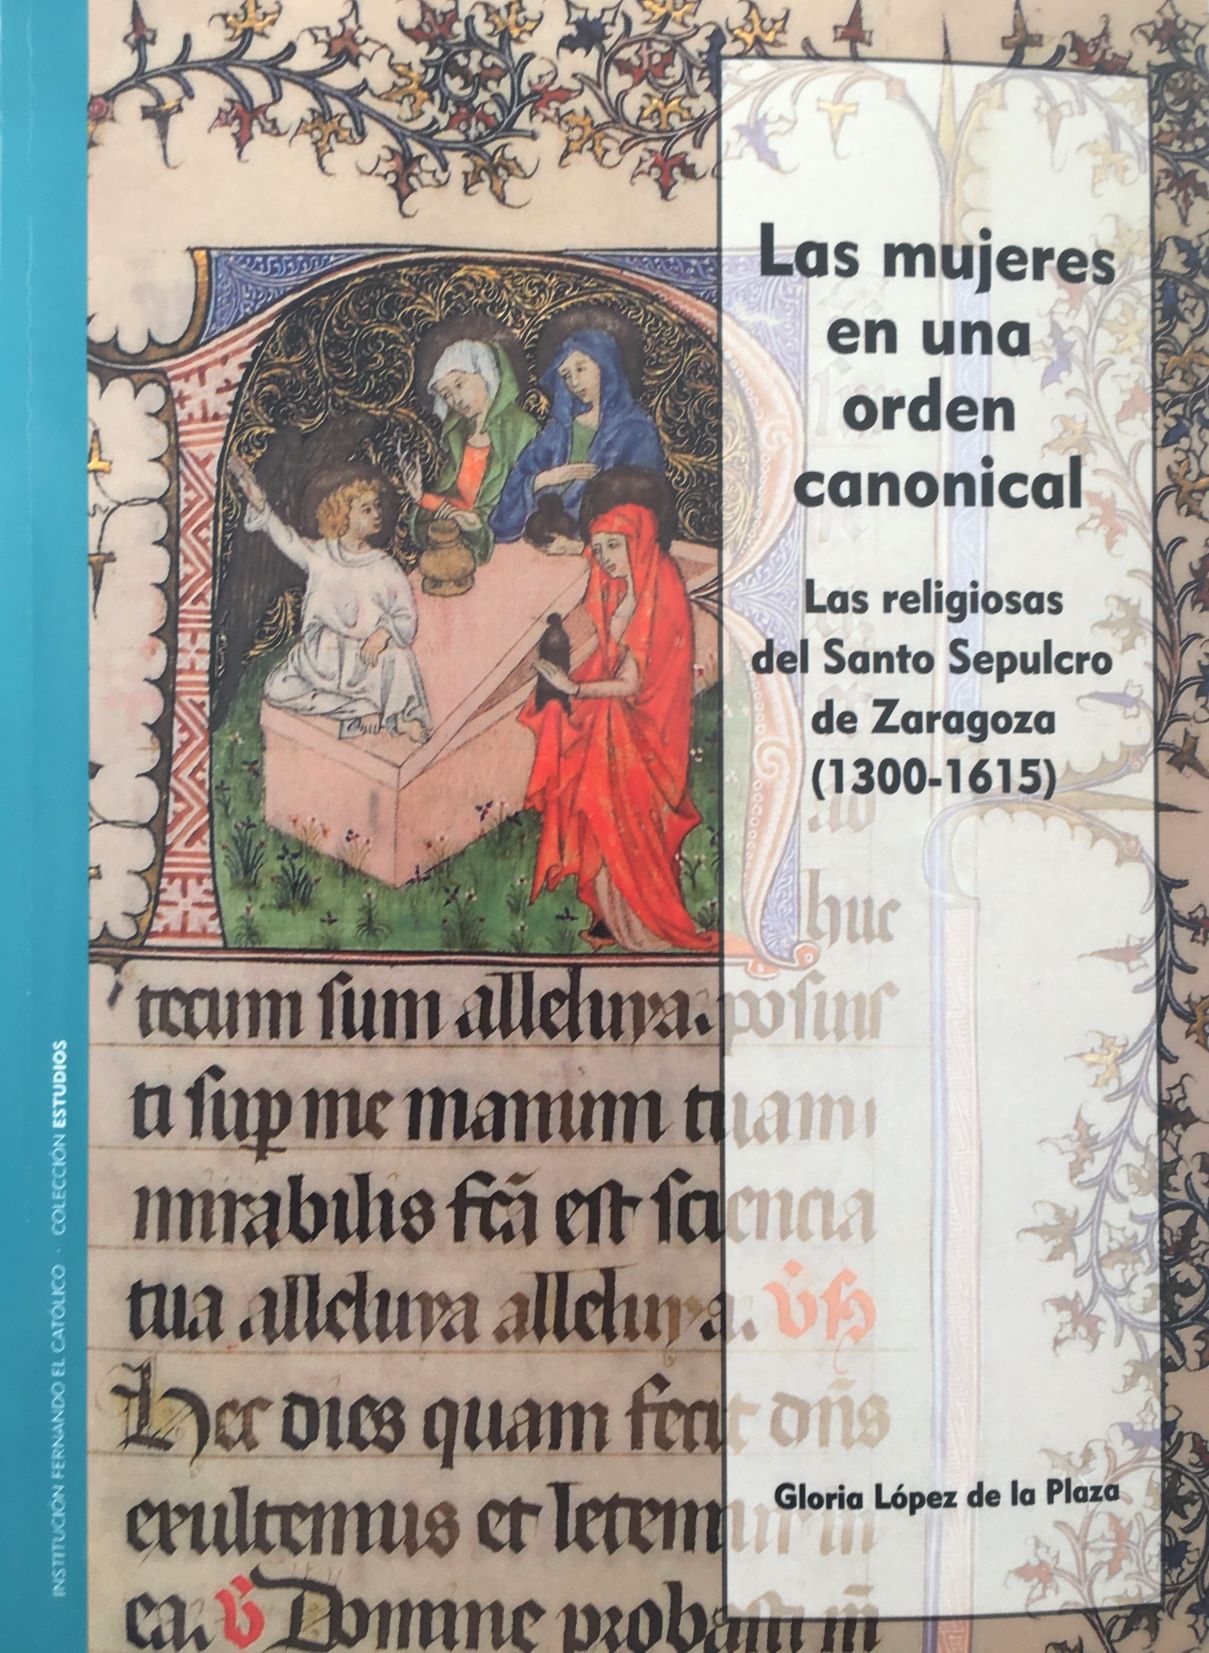 Las mujeres
en una
orden
canonical
Las religiosas
del Santo Sepulcro
de Zaragoza
(1300-1615)
huc
tecum sum alleluya. posuis
ti sup me manum tuam
mirabilis fcā est sciencia
tua alleluya alleluya.
Hec dies quam fecit dñs
exultemus et letemur in
ea. Domine probasti m̄
Gloria López de la Plaza
INSTITUCIÓN FERNANDO EL CATÓLICO · COLECCIÓN ESTUDIOS